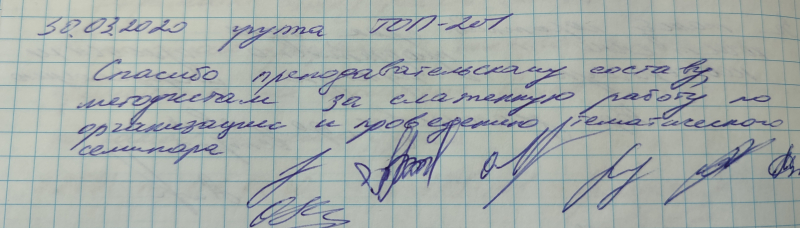 30.03.2020 группа ТОП-201
Спасибо преподавательскому составу,
методистам за слаженную работу по
организации и проведению тематического
семинара